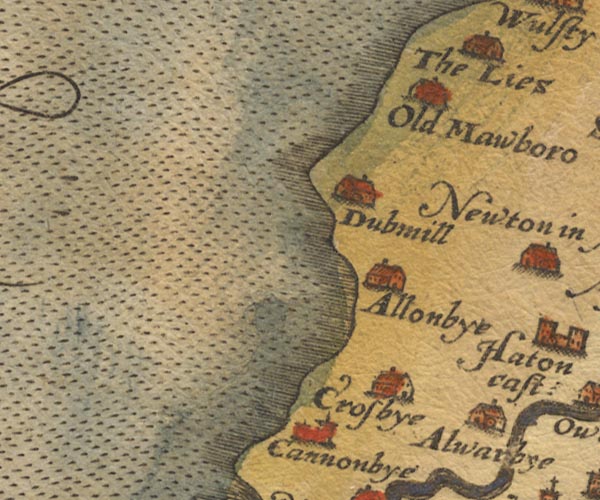 Wulſty
The Lies
Old Mawboro
Newton in
Dubmill
Allonbye
Haton
caſt:
Croſbye
Alwarbye
Cannonbye